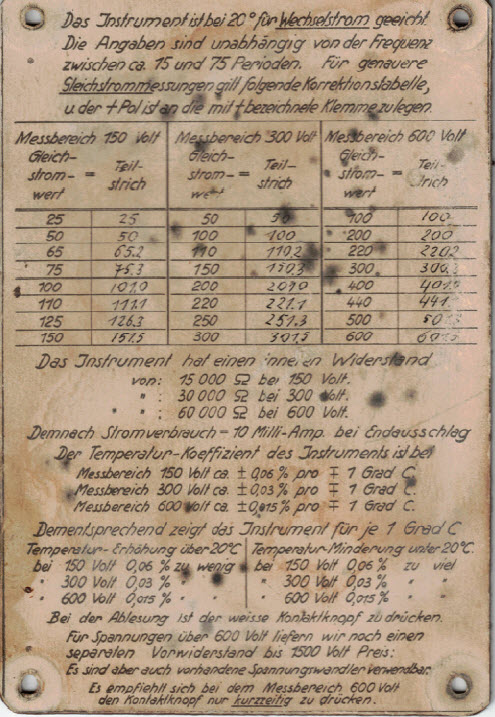 Das Instrument ist bei 20° für Wechselstrom geeicht.
Die Angaben sind unabhängig von der Frequenz
zwischen ca. 15 und 75 Perioden. Für genauere
Gleichstrommessungen gilt folgende Korrektionstabelle,
u. der + Pol ist an die mit + bezeichnete Klemme zu legen.
Messbereich 150 Volt Messbereich 300 Volt Messbereich 600 Volt
Gleich- Gleich- Gleich-
strom- = Teil- strom- = Teil- strom- = Teil-
wert strich wert strich wert strich
25 25 50 50 100 100
50 50 100 100 200 200
65 65.2 110 110.2 220 220.2
75 75.3 150 150.3 300 300.3
100 101.0 200 201.0 400 401.0
110 111.1 220 221.1 440 441.
125 126.3 250 251.3 500
150 151.5 300 301.5 600 601.5
Das Instrument hat einen inneren Widerstand
von: 15 000 Ω bei 150 Volt.
" : 30 000 Ω bei 300 Volt.
" : 60 000 Ω bei 600 Volt.
Demnach Stromverbrauch = 10 Milli-Amp. bei Endausschlag
Der Temperatur-Koeffizient des Instruments ist bei
Messbereich 150 Volt ca. ± 0,06 % pro ∓ 1 Grad C.
Messbereich 300 Volt ca. ± 0,03 % pro ∓ 1 Grad C.
Messbereich 600 Volt ca. ± 0,015 % pro ∓ 1 Grad C.
Dementsprechend zeigt das Instrument für je 1 Grad C
Temperatur-Erhöhung über 20°C Temperatur-Minderung unter 20°C.
bei 150 Volt 0,06 % zu wenig bei 150 Volt 0,06 % zu viel
" 300 Volt 0,03 % " " " 300 Volt 0,03 % " "
" 600 Volt 0,015 % " " " 600 Volt 0,015 % " "
Bei der Ablesung ist der weisse Kontaktknopf zu drücken.
Für Spannungen über 600 Volt liefern wir noch einen
separalen Vorwiderstand bis 1500 Volt Preis:
Es sind aber auch vorhandene Spannungswandler verwendbar.
Es empfiehlt sich bei dem Messbereich 600 Volt
den Kontaktknopf nur kurzzeitig zu drücken.